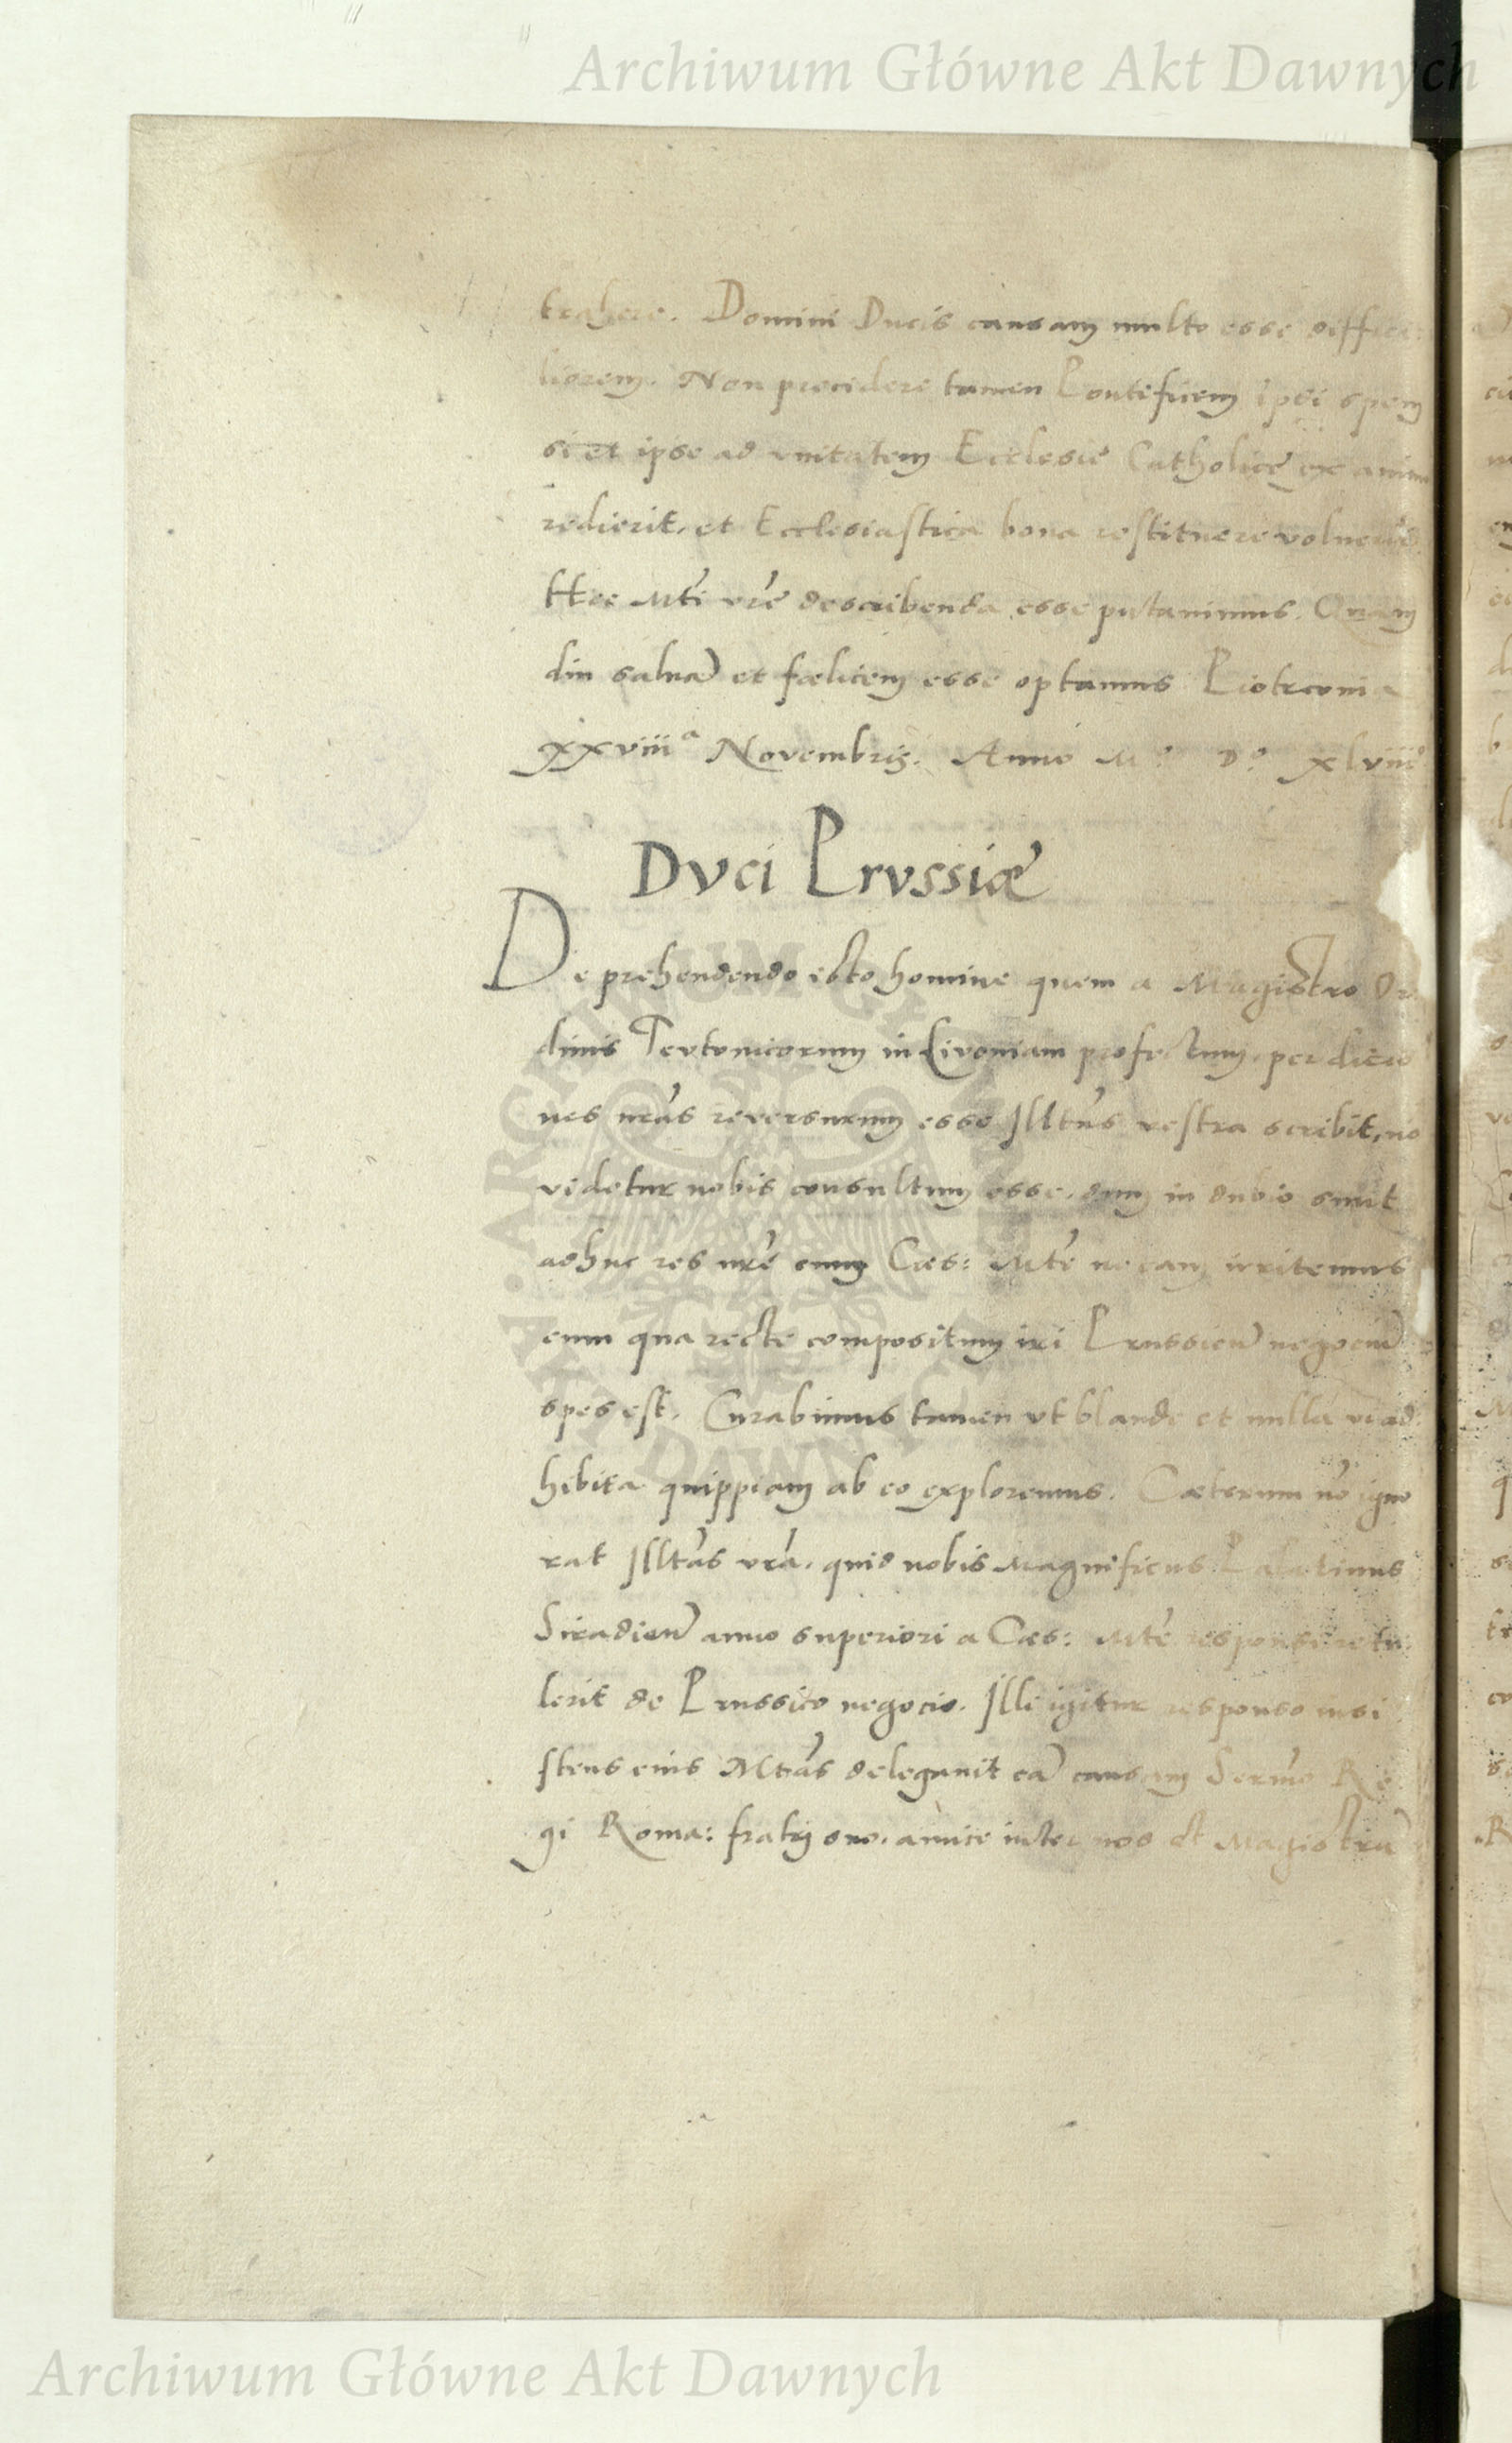 Archiwum Główne Akt Dawnych
trahere. Domini Ducis causam multo esse diffici
liorem. Non precidere tamen Pontificem ipsi spem
si et ipse ad vnitatem Ecclesię Catholicę ex animo
redierit, et Ecclesiastica bona restituere voluerit.
Hec Mti vrę describenda esse putauimus. Quam
diu saluā et fœlicem esse optamus Piotrconia
xxviiiª Novembris. Anno M° D° xlviii°
DVCI PRVSSIÆ
De prehendendo isto homine quem a Magistro Or
dinis Teutonicorum in Livoniam profectum, per dicio
nes nrās reversurum esse Illtās vestra scribit, nō
videtur nobis consultum esse, dum in dubio sunt
adhuc res nrę cum Cæs: Mte ne eam irritemus
cum qua recte compositum iri Prussicū negociū
spes est. Curabimus tamen vt blande et nulla vi ad
hibita quippiam ab eo exploremus. Cæterum nō igno
rat Illtās vrā, quid nobis Magnificus Palatinus
Siradień anno superiori a Cæs: Mte responsi retu
lerit de Prussico negocio. Illi igitur responso insi
stens eius Mtās delegauit eā causam Sermo Re
gi Roma: fratri suo, amice inter nos et Magistrū
ARCHIWUM GŁÓWNE AKT DAWNYCH
Archiwum Główne Akt Dawnych